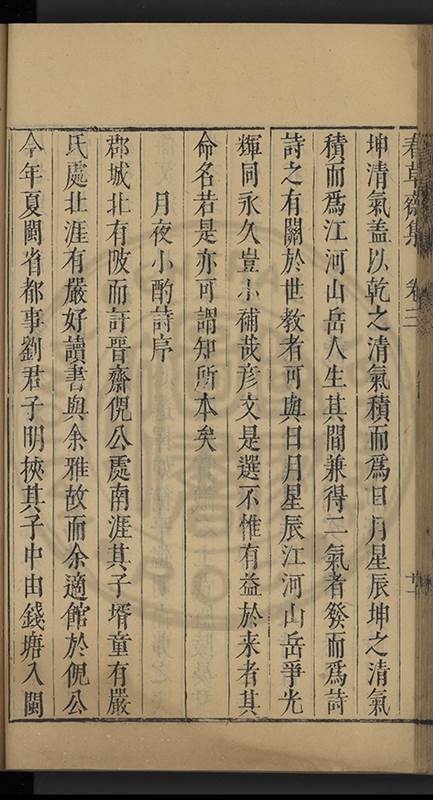 春草齋集 卷三
坤清氣蓋以乾之清氣積而爲日月星辰坤之清氣
積而爲江河山岳人生其間兼得二氣者發而爲詩
詩之有關於世教者可與日月星辰江河山岳爭光
輝同永久豈小補哉彥文是選不惟有益於来者其
命名若是亦可謂知所本矣
月夜小酌詩序
郡城北有陂而訏晋齋倪公處南涯其子壻童有嚴
氏處北涯有嚴好讀書與余雅故而余適館於倪公
今年夏閩省都事劉君子明挾其子中由錢塘入閩